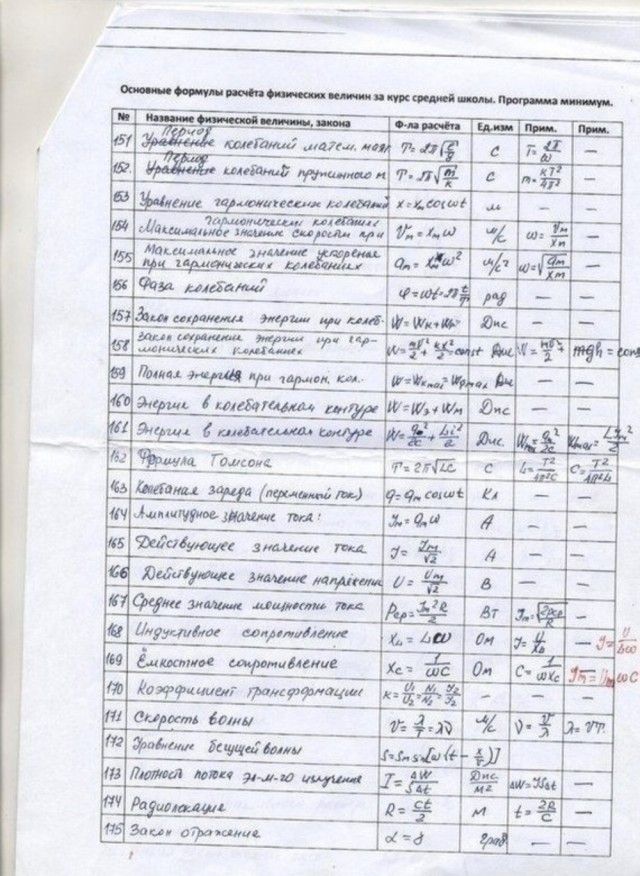 Основные формулы расчёта физических величин за курс средней школы. Программа минимум.
№ Название физической величины, закона Ф-ла расчёта Ед.изм Прим. Прим.
Период
151 Уравнение колебаний матем. маят. T=2π√(ℓ/g) с T=2π/ω —
Период
152. Уравнение колебаний пружинного м T=2π√(m/k) с m=kT²/4π² —
153 Уравнение гармонических колебаний x=xₘcosωt м — —
гармонических колебаниях
154 Максимальное значение скорости при Vₘ=xₘω м/с ω=Vₘ/xₘ —
155 Максимальное значение ускорения
при гармонических колебаниях aₘ=xₘω² м/с² ω=√(aₘ/xₘ) —
156 Фаза колебаний φ=ωt=2πt/T рад — —
157 Закон сохранения энергии при колеб. W=Wк+Wр Дж — —
158 Закон сохранения энергии при гар-
монических колебаниях W=mv²/2+kx²/2=const Дж W=mv²/2+mgh=cons
159 Полная энергия при гармон. кол. W=Wкmax=Wрmax Дж — —
160 Энергия в колебательном контуре W=Wэ+Wм Дж — —
161 Энергия в колебательном контуре W=q²/2C+Li²/2 Дж
162 Формула Томсона T=2π√LC с L=T²/4π²C C=T²/4π²L
163 Колебания заряда (переменный ток) q=qₘcosωt Кл — —
164 Амплитудное значение тока: Iₘ=qₘω А — —
165 Действующее значение тока I=Iₘ/√2 А — —
166 Действующее значение напряжения U=Uₘ/√2 В — —
167 Среднее значение мощности тока Pср=Iₘ²R/2 Вт Iₘ=√(2Pср/R) —
168 Индуктивное сопротивление X_L=Lω Ом I=U/X_L — I=U/Lω
169 Ёмкостное сопротивление Xc=1/ωC Ом C=1/ωXc Iₘ=UₘωC
170 Коэффициент трансформации K=U₁/U₂=N₁/N₂=I₂/I₁ — — —
171 Скорость волны V=λ/T=λν м/с ν=V/λ λ=VT.
172 Уравнение бегущей волны S=Sₘsin[ω(t-x/v)]
173 Плотность потока эл-м-го излучения I=ΔW/SΔt Дж/м² ΔW=ISΔt —
174 Радиолокация R=ct/2 м t=2R/C —
175 Закон отражения α=γ град — —